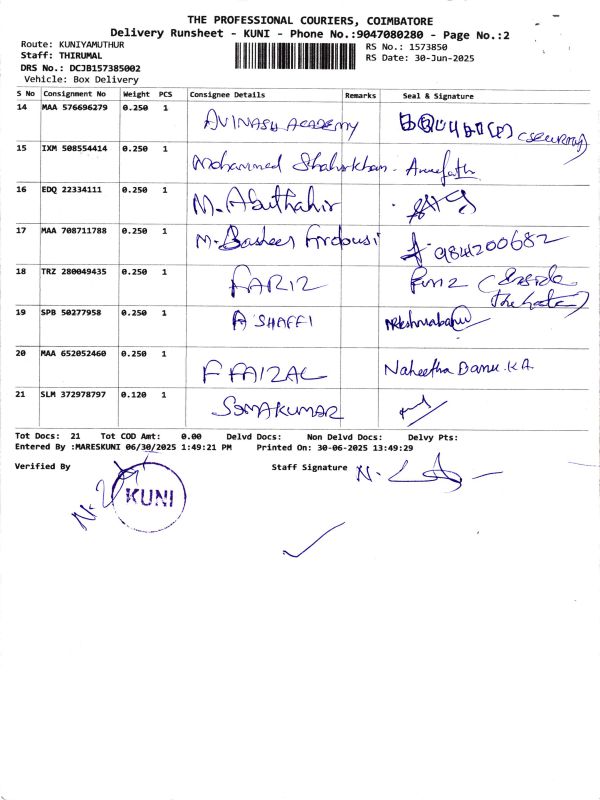 THE PROFESSIONAL COURIERS, COIMBATORE
Delivery Runsheet - KUNI - Phone No.:9047080280 - Page No.:2
Route: KUNIYAMUTHUR RS No.: 1573850
Staff: THIRUMAL RS Date: 30-Jun-2025
DRS No.: DCJB157385002
Vehicle: Box Delivery
S No Consignment No Weight PCS Consignee Details Remarks Seal & Signature
14 MAA 576696279 0.250 1 AVINASH ACADEMY (security)
15 IXM 508554414 0.250 1 Mohammed Shahrkhan
16 EDQ 22334111 0.250 1 M. Abuthahir
17 MAA 708711788 0.250 1 M. Basheer Firdousi 9841200682
18 TRZ 280049435 0.250 1 FARIZ (Inside the gate)
19 SPB 50277958 0.250 1 A SHAFFI
20 MAA 652052460 0.250 1 F FAIZAL Naheetha Banu.K.A
21 SLM 372978797 0.120 1 SOMAKUMAR
Tot Docs: 21 Tot COD Amt: 0.00 Delvd Docs: Non Delvd Docs: Delvy Pts:
Entered By :MARESKUNI 06/30/2025 1:49:21 PM Printed On: 30-06-2025 13:49:29
Verified By Staff Signature
KUNI